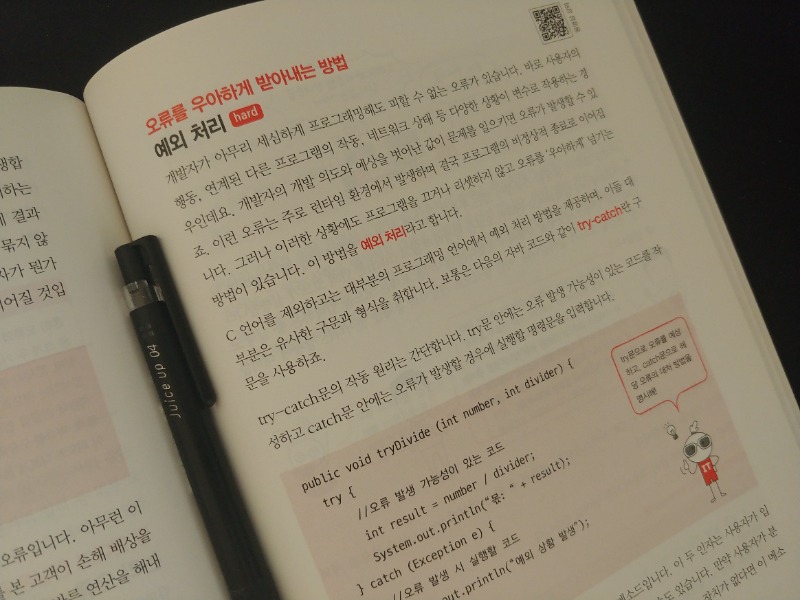 생합
하는
결과
묶지 않
자가 뭔가
어질 것입
오류입니다. 아무런 이
본 고객이 손해 배상을
연산을 해내
Juice up 04
오류를 우아하게 받아내는 방법
예외 처리 hard
개발자가 아무리 세심하게 프로그래밍해도 피할 수 없는 오류가 있습니다. 바로 사용자의
행동, 연계된 다른 프로그램의 작동, 네트워크 상태 등 다양한 상황이 변수로 작용하는 경
우인데요. 개발자의 개발 의도와 예상을 벗어난 값이 문제를 일으키면 오류가 발생할 수 있
죠. 이런 오류는 주로 런타임 환경에서 발생하며 결국 프로그램의 비정상적 종료로 이어집
니다. 그러나 이러한 상황에도 프로그램을 끄거나 리셋하지 않고 오류를 '우아하게' 넘기는
방법이 있습니다. 이 방법을 예외 처리라고 합니다.
C 언어를 제외하고는 대부분의 프로그래밍 언어에서 예외 처리 방법을 제공하며, 이들 대
부분은 유사한 구문과 형식을 취합니다. 보통은 다음의 자바 코드와 같이 try-catch란 구
문을 사용하죠.
try-catch문의 작동 원리는 간단합니다. try문 안에는 오류 발생 가능성이 있는 코드를 작
성하고 catch문 안에는 오류가 발생할 경우에 실행할 명령문을 입력합니다.
public void tryDivide (int number, int divider) {
try {
//오류 발생 가능성이 있는 코드
int result = number / divider;
System.out.println("몫: " + result);
} catch (Exception e) {
//오류 발생 시 실행할 코드
out.println("예외 상황 발생");
try문으로 오류를 예상
하고, catch문으로 해
당 오류의 대처 방법을
명시해!
IT
메소드입니다. 이 두 인자는 사용자가 입
수도 있습니다. 만약 사용자가 분
숫자가 없다면 이 메소